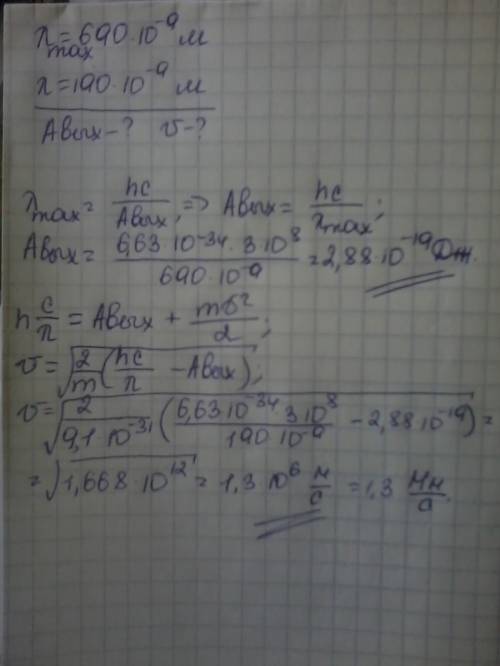 λmax = 690·10⁻⁹ м
λ = 190·10⁻⁹ м
Aвых - ? υ - ?
λmax = hc/Aвых; => Aвых = hc/λmax;
Aвых = 6,63·10⁻³⁴·3·10⁸/690·10⁻⁹ = 2,88·10⁻¹⁹ Дж.
h c/λ = Aвых + mυ²/2;
υ = √(2/m (hc/λ - Aвых));
υ = √(2/9,1·10⁻³¹ (6,63·10⁻³⁴·3·10⁸/190·10⁻⁹ - 2,88·10⁻¹⁹)) =
= √(1,668·10¹²) = 1,3·10⁶ м/с = 1,3 Мм/с.